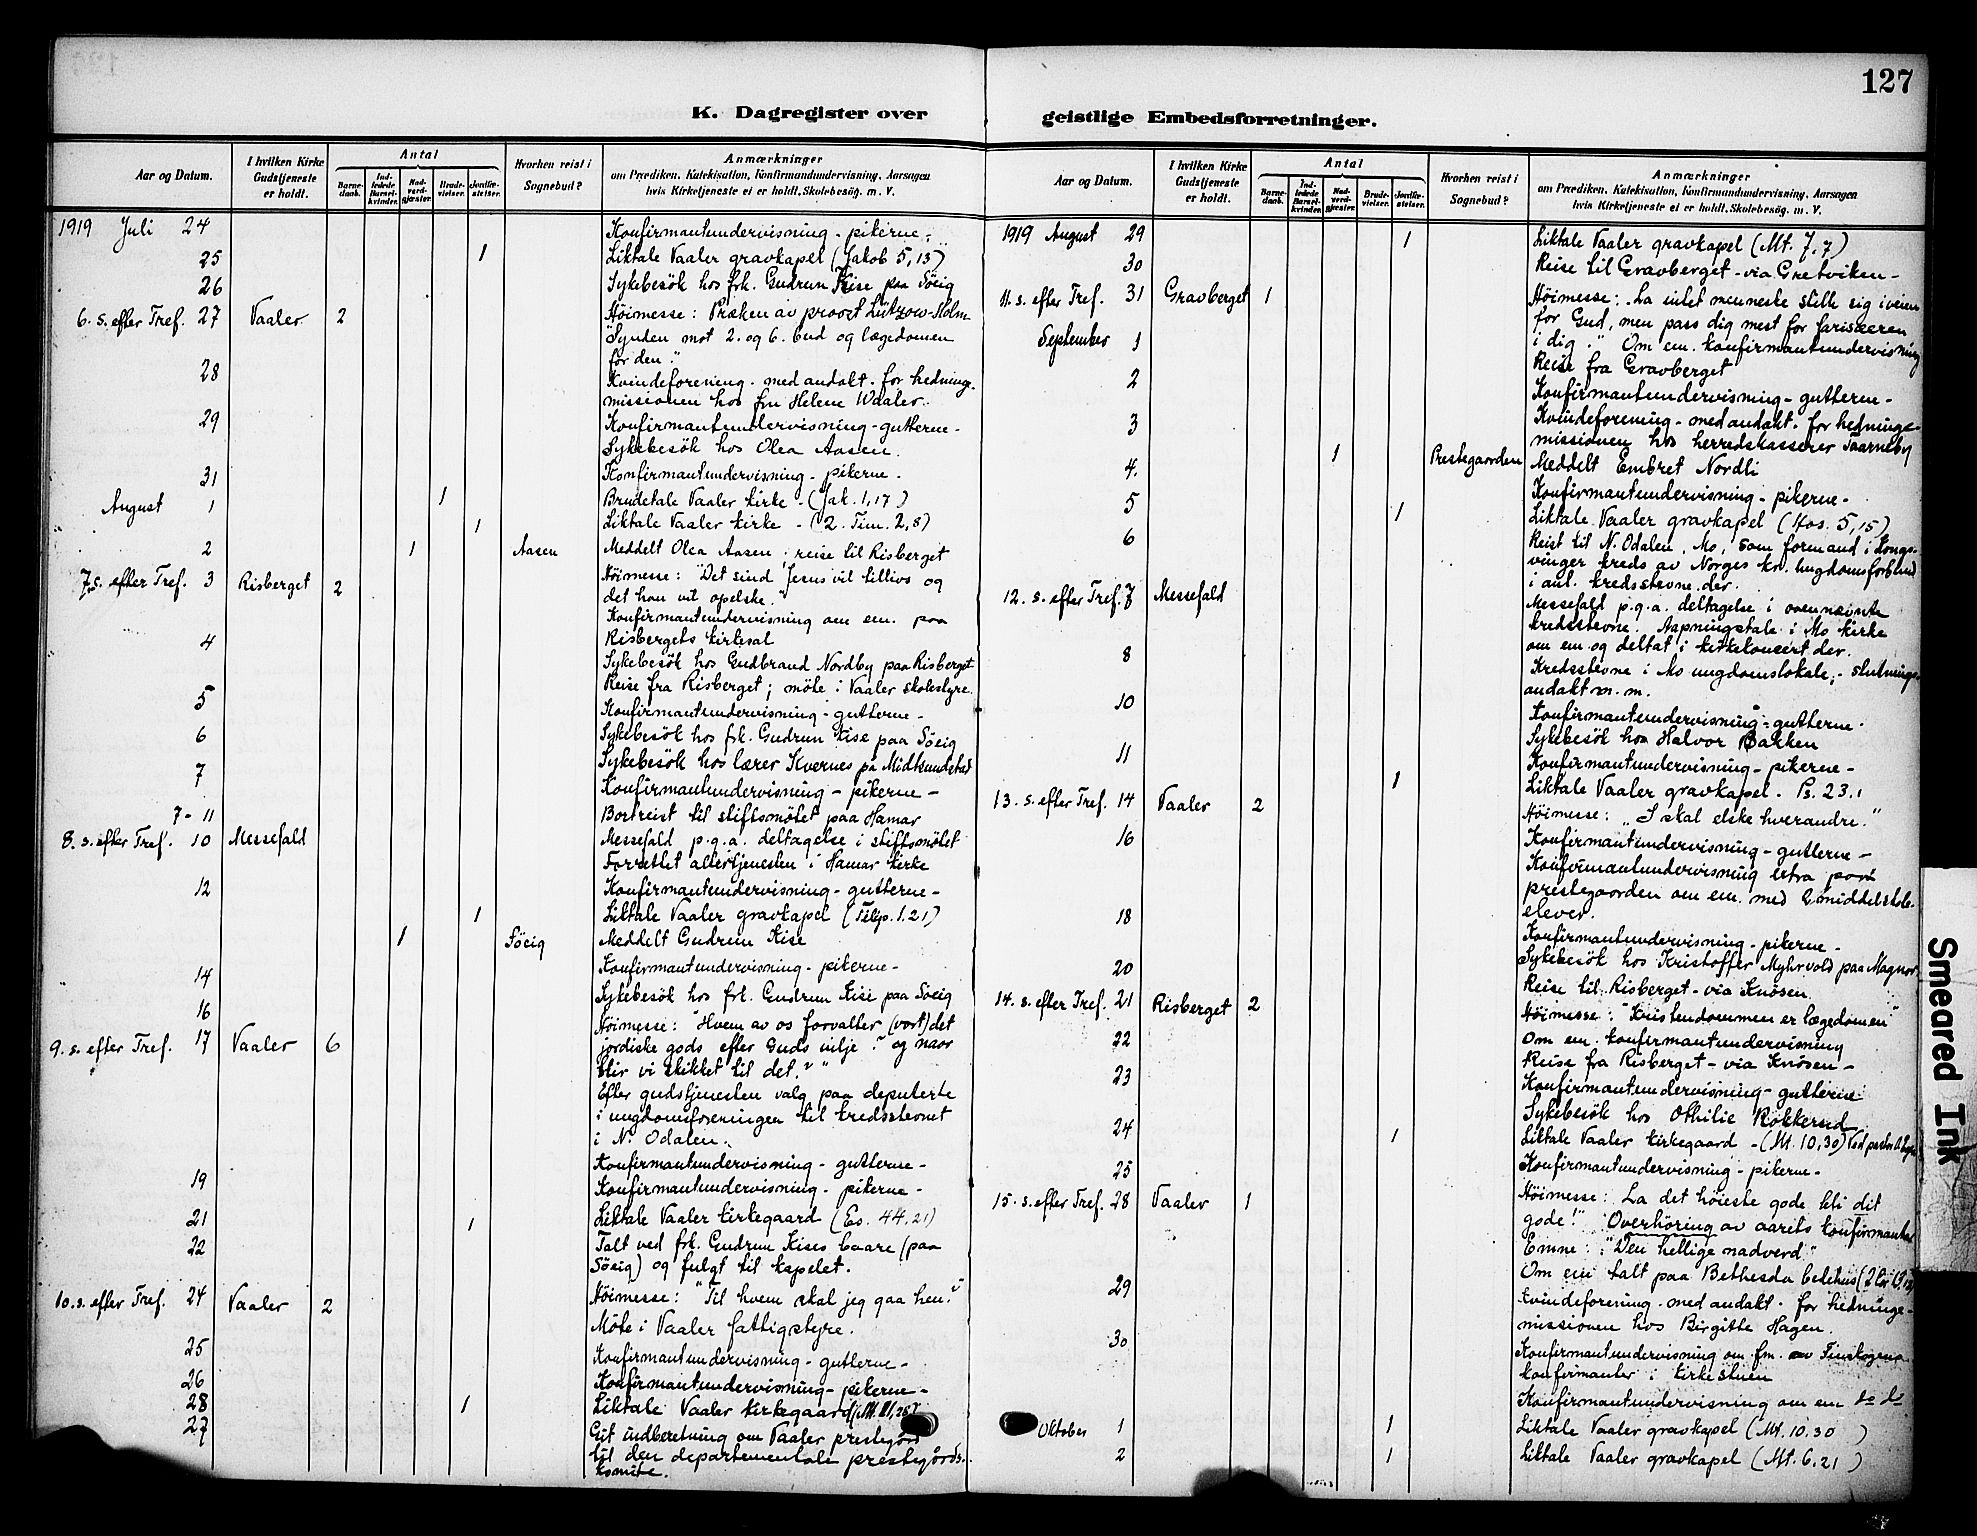 127
K. Dagregister over
geistlige Embedsforretninger.
Aar og Datum.
I hvilken Kirke Gudstjeneste er holdt.
Antal
Barnedaab.
Indledede Barselkvinder.
Nadverdgjæster.
Brudevielser.
Jordfæstelser.
Hvorhen reist i Sognebud?
Anmærkninger
om Prædiken, Katekisation, Konfirmandundervisning, Aarsagen
hvis Kirketjeneste ei er holdt, Skolebesøg, m. V.
1919 Juli 24 Konfirmantundervisning - pikerne -
25 1 Liktale Vaaler gravkapel (Jakob 5,13)
26 Sykebesök hos frk. Gudrun Kise paa Söeig
6. s. efter Tref. 27 Vaaler 2 Höimesse: Præken av provst Lützow-Holm
"Synden mot 2. og 6. bud og lægedomen
for den."
28 Kvindeforening - med andakt - for hednings-
missionen hos fru Helene Waaler.
29 Konfirmantundervisning - gutterne -
Sykebesök hos Olea Aasen.
31 Konfirmantundervisning - pikerne -
August 1 1 Brudetale Vaaler kirke - (Jak. 1,17)
1 Liktale Vaaler kirke - (2. Tim. 2,8)
2 1 Aasen Meddelt Olea Aasen; reise til Risberget
7. s. efter Tref. 3 Risberget 2 Höimesse: "Det sind Jesus vil tillivs og
det han vil opelske."
Konfirmantundervisning om em. paa
Risbergets kirkesal
4 Sykebesök hos Gudbrand Nordby paa Risberget
Reise fra Risberget; möte i Vaaler skolestyre.
5 Konfirmantundervisning - gutterne -
6 Sykebesök hos frk. Gudrun Kise paa Söeig
Sykebesök hos lærer Kvernes på Midtsundstad
7 Konfirmantundervisning - pikerne -
7-11 Bortreist til stiftsmötet paa Hamar
8. s. efter Tref. 10 Messefald Messefald p.g.a. deltagelse i stiftsmötet
Forrettet altertjenesten i Hamar kirke
12 Konfirmantundervisning - gutterne -
1 Liktale Vaaler gravkapel (Filip. 1.21)
1 Söeig Meddelt Gudrun Kise
14 Konfirmantundervisning - pikerne -
16 Sykebesök hos frk. Gudrun Kise paa Söeig
9. s. efter Tref. 17 Vaaler 6 Höimesse: "Hvem av os forvalter (vort) det
jordiske gods efter Guds vilje? og naar
blir vi skikket til det?"
Efter gudstjenesten valg paa deputerte
i ungdomsforeningen til kredsstevnet
i N. Odalen.
Konfirmantundervisning - gutterne -
19 Konfirmantundervisning - pikerne -
21 1 Liktale Vaaler kirkegaard (Es. 44.21)
22 Talt ved frk. Gudrun Kises baare (paa
Söeig) og fulgt til kapelet.
10. s. efter Tref. 24 Vaaler 2 Höimesse: "Til hvem skal jeg gaa hen?"
Möte i Vaaler fattigstyre.
25 Konfirmantundervisning - gutterne -
26 Konfirmantundervisning - pikerne -
28 1 Liktale Vaaler kirkegaard (Mt. 11,28)
27 Git indberetning om Vaaler prestegård
til den departementale prestegårds-
komite.
Aar og Datum.
I hvilken Kirke Gudstjeneste er holdt.
Antal
Barnedaab.
Indledede Barselkvinder.
Nadverdgjæster.
Brudevielser.
Jordfæstelser.
Hvorhen reist i Sognebud?
Anmærkninger
om Prædiken, Katekisation, Konfirmandundervisning, Aarsagen
hvis Kirketjeneste ei er holdt, Skolebesøg, m. V.
1919 August 29 1 Liktale Vaaler gravkapel (Mt. 7.7)
30 Reise til Gravberget - via Gretviken -
11. s. efter Tref. 31 Gravberget 1 Höimesse: "La intet menneske stille sig i veien
for Gud, men pass dig mest for farisæeren
i dig." Om em. konfirmantundervisning
September 1 Reise fra Gravberget
2 Konfirmantundervisning - gutterne -
3 Kvindeforening - med andakt - for hednings-
missionen hos herredskasserer Taarneby
1 Prestegaarden Meddelt Embret Nordli
4. Konfirmantundervisning - pikerne -
5 1 Liktale Vaaler gravkapel (Hos. 5,15)
6 Reist til N. Odalen, Mo, som formand i Kongs-
vinger kreds av Norges kr. ungdomsforbund
i anl. kredsstevne der.
12. s. efter Tref. 7 Messefald Messefald p.g.a. deltagelse i ovennævnte
kredsstevne. Aapningstale i Mo kirke
om em og deltat i kirkekoncert der.
8 Kredsstevne i Mo ungdomslokale; - slutnings-
andakt m. m.
10 Konfirmantundervisning - gutterne -
Sykebesök hos Halvor Bakken
11 Konfirmantundervisning - pikerne -
1 Liktale Vaaler gravkapel. Ps. 23.1
13. s. efter Tref. 14 Vaaler 2 Höimesse: "I skal elske hverandre."
16 Konfirmantundervisning - gutterne -
Konfirmantundervisning extra paa
prestegaarden om em. med 6 middelskole-
elever.
18 Konfirmantundervisning - pikerne -
Sykebesök hos Kristoffer Myhrvold paa Magnor
20 Reise til Risberget - via Knösen
14. s. efter Tref. 21 Risberget 2 Höimesse: "Kristendommen er lægedomen"
Om em. konfirmantundervisning
22 Reise fra Risberget - via Knösen -
23 Konfirmantundervisning - gutterne -
Sykebesök hos Othilie Rökkerud
24 1 Liktale Vaaler kirkegaard - (Mt. 10,30)
25 Konfirmantundervisning - pikerne -
15. s. efter Tref. 28 Vaaler 1 Höimesse: La det höieste gode bli dit
gode!" Overhöring av aarets konfirmanter
Emne: "Den hellige nadverd"
Om em talt paa Bethesda bedehus
29 Kvindeforening - med andakt - for hednings-
missionen hos Birgitte Hagen.
30 Konfirmantundervisning om fm. av Finskogens
konfirmanter i kirkestuen
Konfirmantundervisning om em do do
Oktober 1 1 Liktale Vaaler gravkapel (Mt. 10.30)
2 1 Liktale Vaaler gravkapel (Mt. 6.21)
Smeared Ink